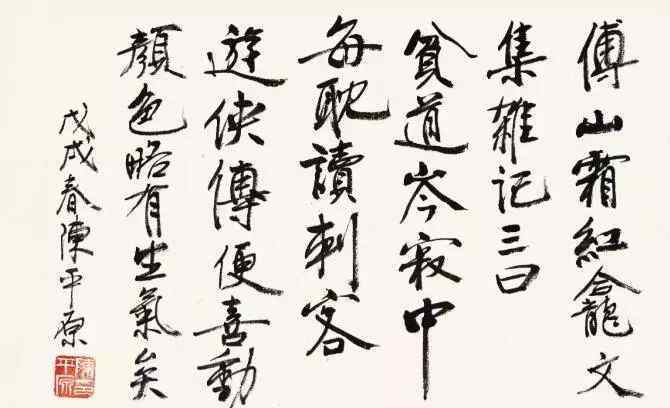 傅山霜紅龕文
集雜記三曰
貧道岑寂中
每耽讀刺客
遊俠傳便喜動
顏色略有生氣矣
戊戌春陳平原